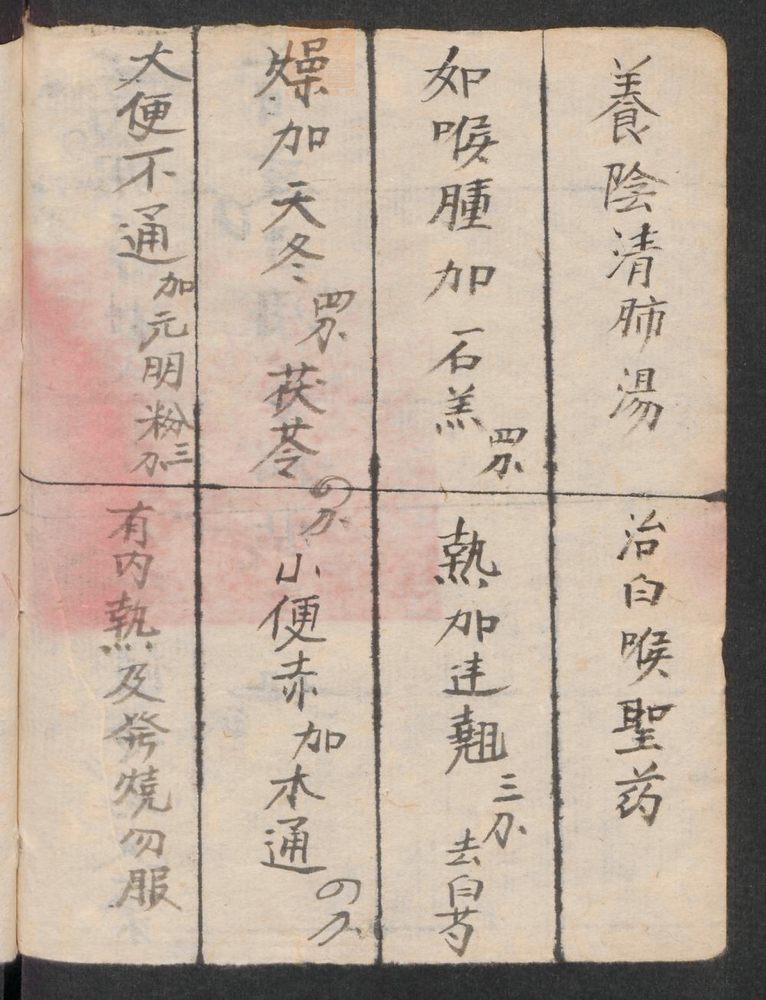 養陰清肺湯 治白喉聖药
如喉腫加石羔四分 熱加連翹三分 去白芍
燥加天冬四分茯苓四分 小便赤加木通四分
大便不通加元明粉三分 有内熱及發燒勿服